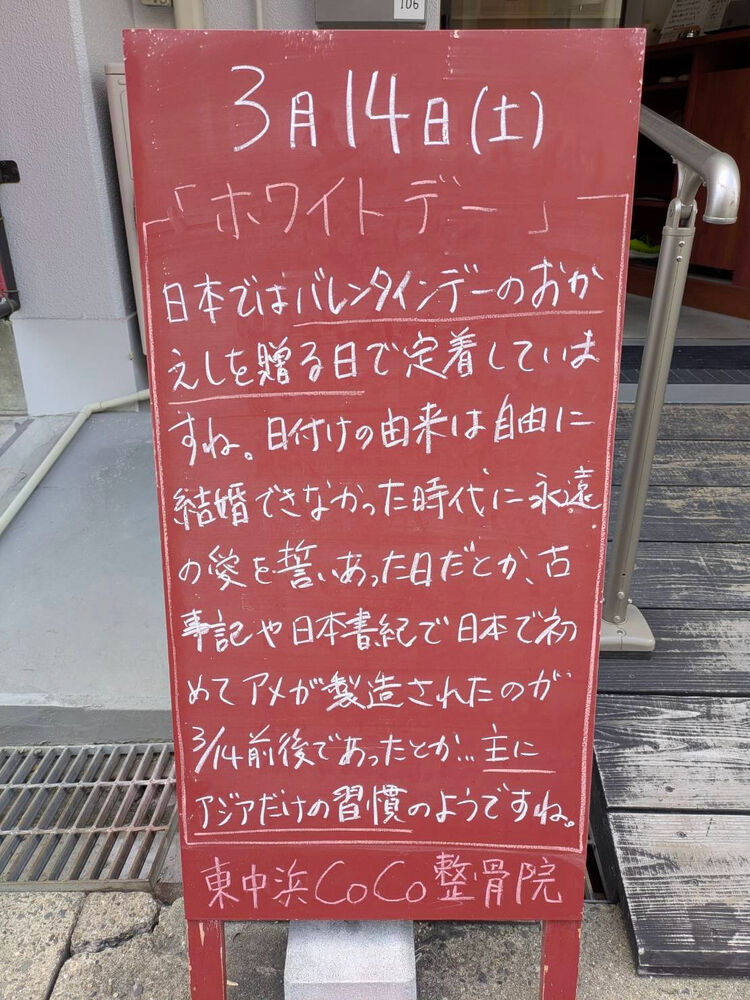 106
3月14日(土)
「ホワイトデー」
日本ではバレンタインデーのおか
えしを贈る日で定着していま
すね。日付けの由来は自由に
結婚できなかった時代に永遠
の愛を誓いあった日だとか、古
事記や日本書紀で日本で初
めてアメが製造されたのが
3/14前後であったとか...主に
アジアだけの習慣のようですね。
東中浜CoCo整骨院